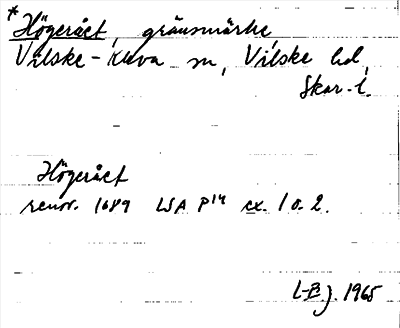 *Högeråct, gränsmärke
Vilske-Kleva sn, Vilske hd,
Skar. l.
Högeråct
renov. 1689 LSA P14 ex. 1 o. 2.
L-B j. 1965